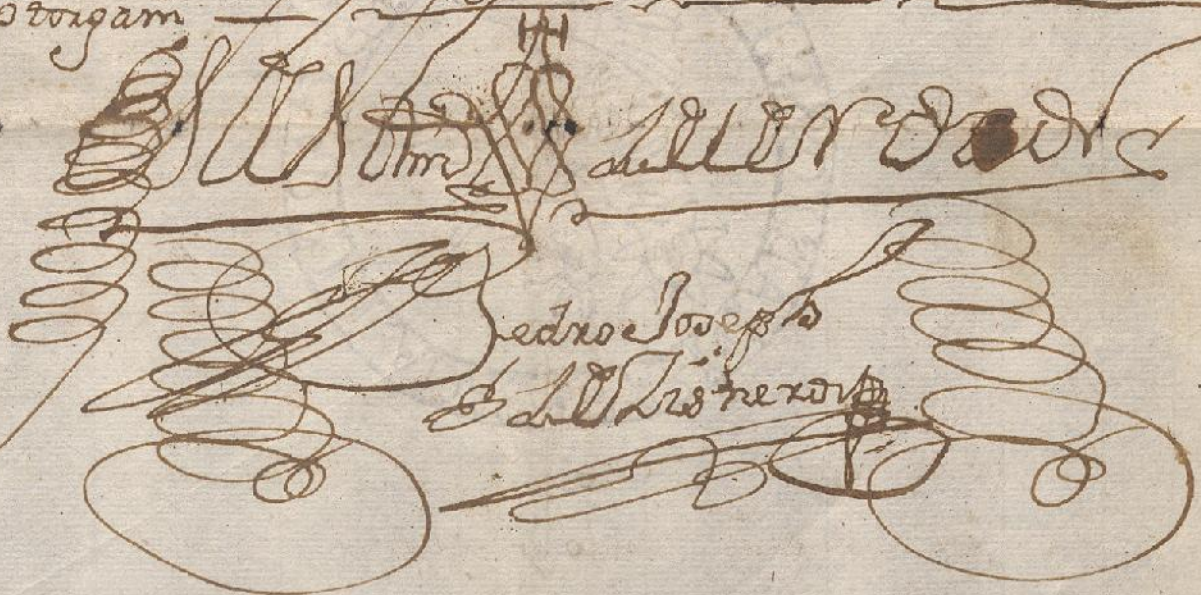 otorgam
de Verdad
Pedro Joseph
de Zisneros